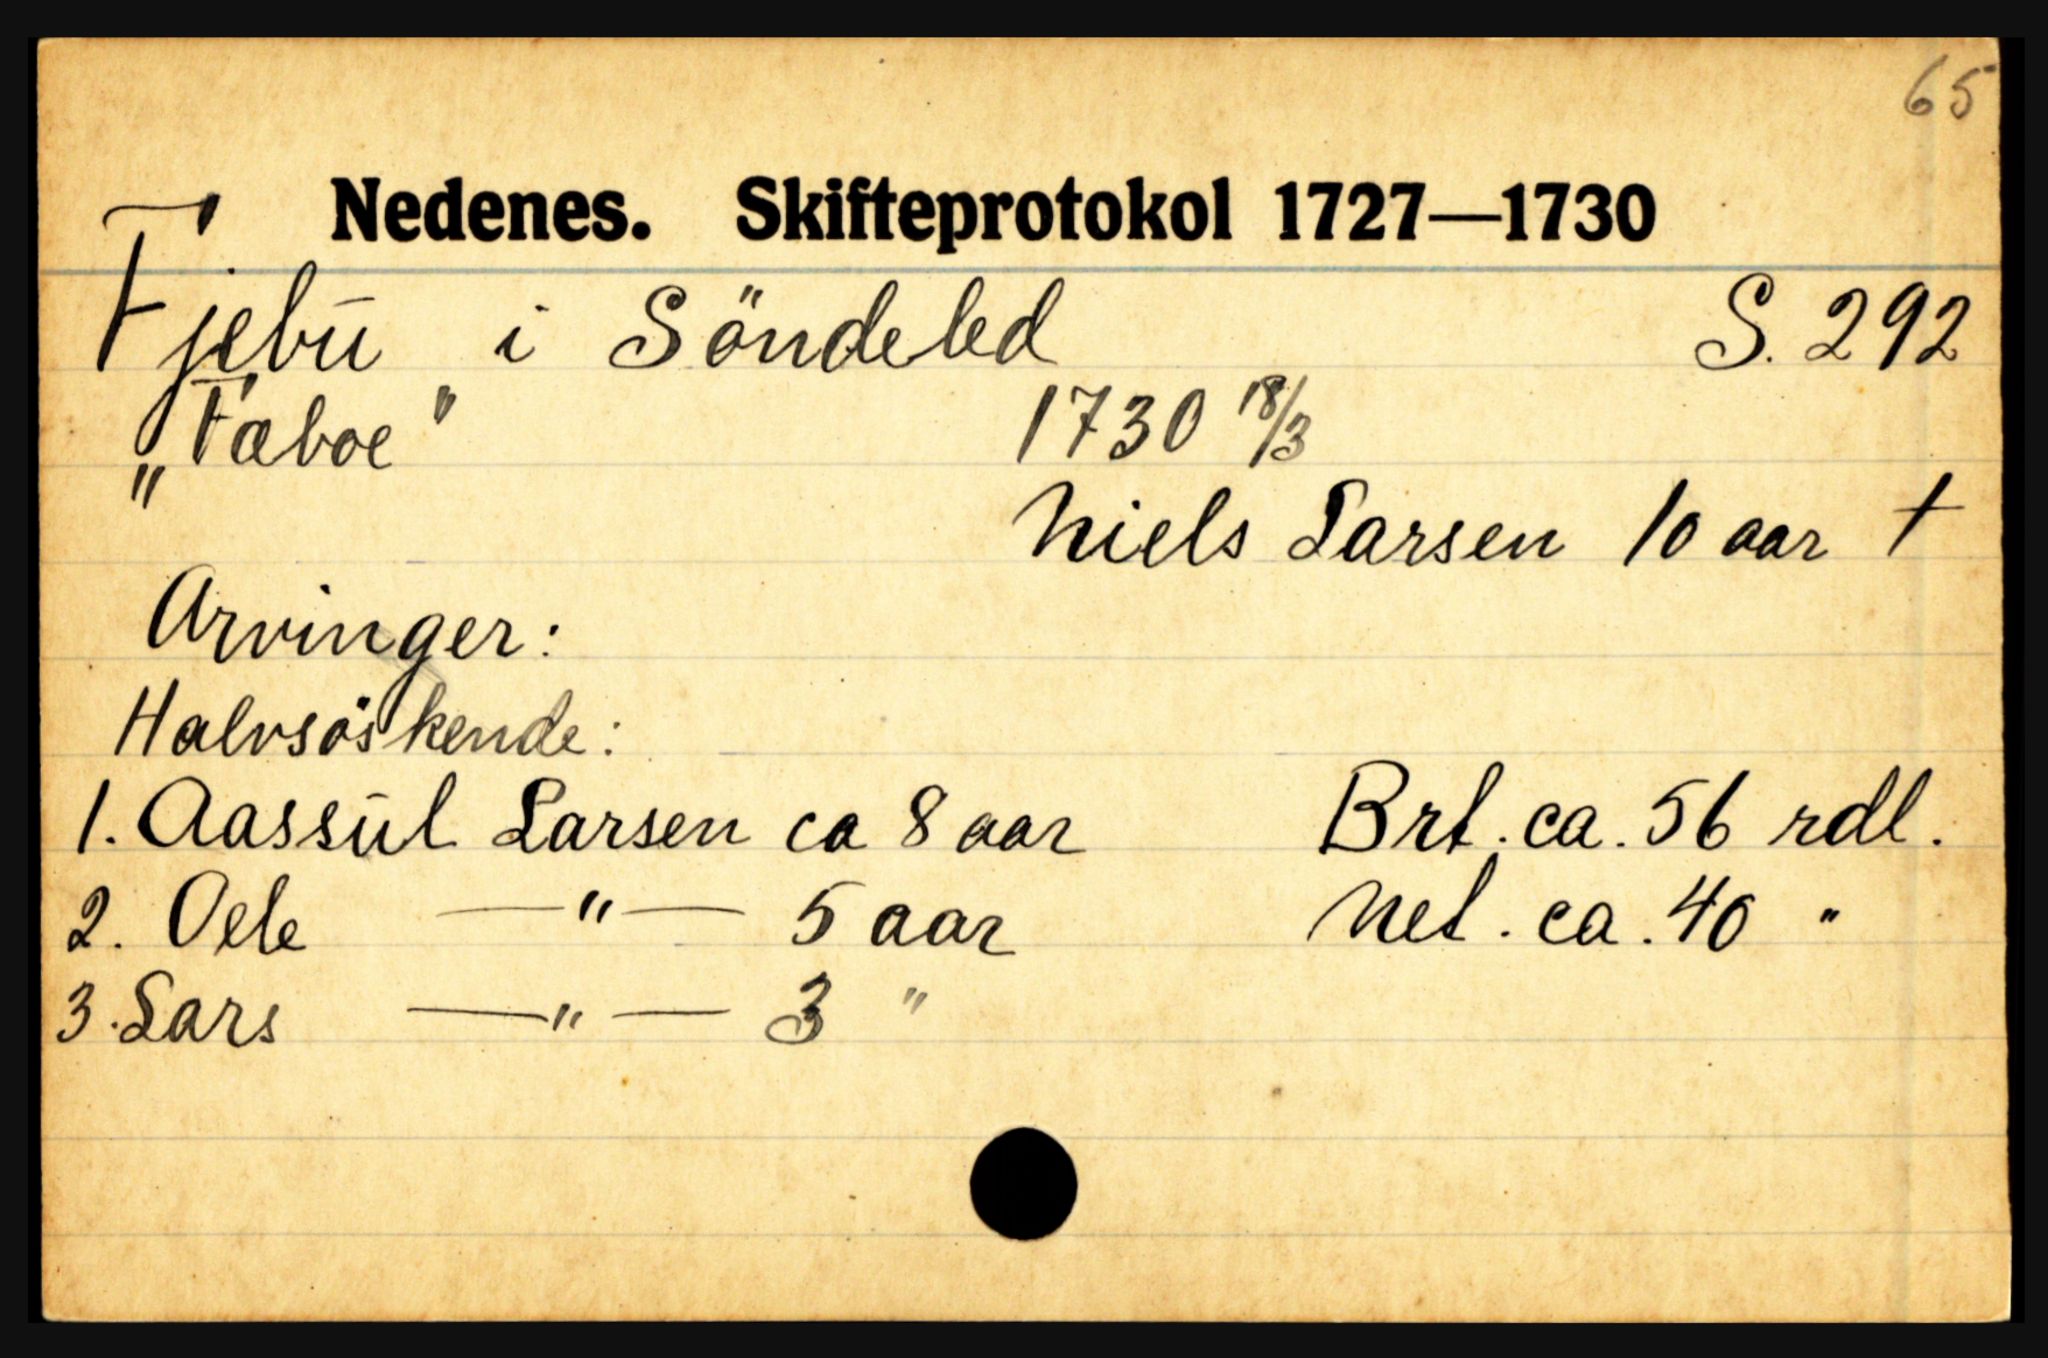 65
Nedenes. Skifteprotokol 1727—1730
Fjebū i Söndeled S. 292
„Fæboe" 1730 18/3
" Niels Larsen 10 aar †
Arvinger:
Halvsöskende:
1. Aassūl Larsen ca 8 aar Brt. ca. 56 rdl.
2. Oele —"— 5 aar Net. ca. 40 "
3. Lars —"— 3 "